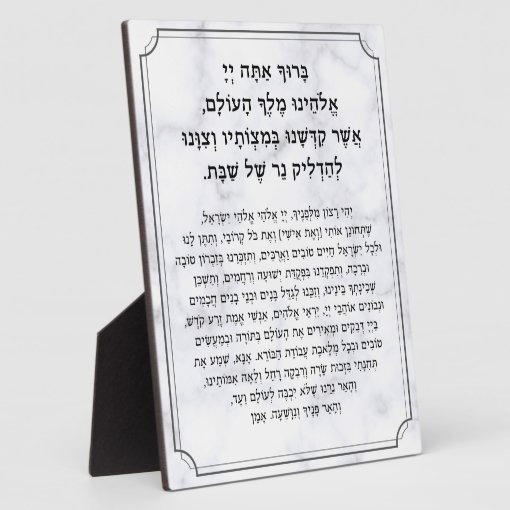 בָּרוּךְ אַתָּה יְיָ
אֱלֹהֵינוּ מֶלֶךְ הָעוֹלָם,
אֲשֶׁר קִדְּשָׁנוּ בְּמִצְוֹתָיו וְצִוָּנוּ
לְהַדְלִיק נֵר שֶׁל שַׁבָּת.
יְהִי רָצוֹן מִלְּפָנֶיךָ, יְיָ אֱלֹהַי אֱלֹהֵי יִשְׂרָאֵל,
שֶׁתְּחוֹנֵן אוֹתִי (וְאֶת אִישִׁי) וְאֶת כֹּל קְרוֹבַי, וְתִתֵּן לָנוּ
וּלְכָל יִשְׂרָאֵל חַיִּים טוֹבִים וַאֲרֻכִּים, וְתִזְכְּרֵנוּ בְּזִכְרוֹן טוֹבָה
וּבְרָכָה, וְתִפְקְדֵנוּ בִּפְקֻדַּת יְשׁוּעָה וְרַחֲמִים, וְתַשְׁכֵּן
שְׁכִינָתְךָ בֵּינֵינוּ, וְזַכֵּנוּ לְגַדֵּל בָּנִים וּבְנֵי בָנִים חֲכָמִים
וּנְבוֹנִים אוֹהֲבֵי יְיָ, יִרְאֵי אֱלֹהִים, אַנְשֵׁי אֱמֶת זֶרַע קֹדֶשׁ,
בַּייָ דְּבֵקִים וּמְאִירִים אֶת הָעוֹלָם בַּתּוֹרָה וּבְמַעֲשִׂים
טוֹבִים וּבְכָל מְלֶאכֶת עֲבוֹדַת הַבּוֹרֵא. אָנָּא, שְׁמַע אֶת
תְּחִנָּתִי בִּזְכוּת שָׂרָה וְרִבְקָה רָחֵל וְלֵאָה אִמּוֹתֵינוּ,
וְהָאֵר נֵרֵנוּ שֶׁלֹּא יִכְבֶּה לְעוֹלָם וָעֶד,
וְהָאֵר פָּנֶיךָ וְנִוָּשֵׁעָה. אָמֵן